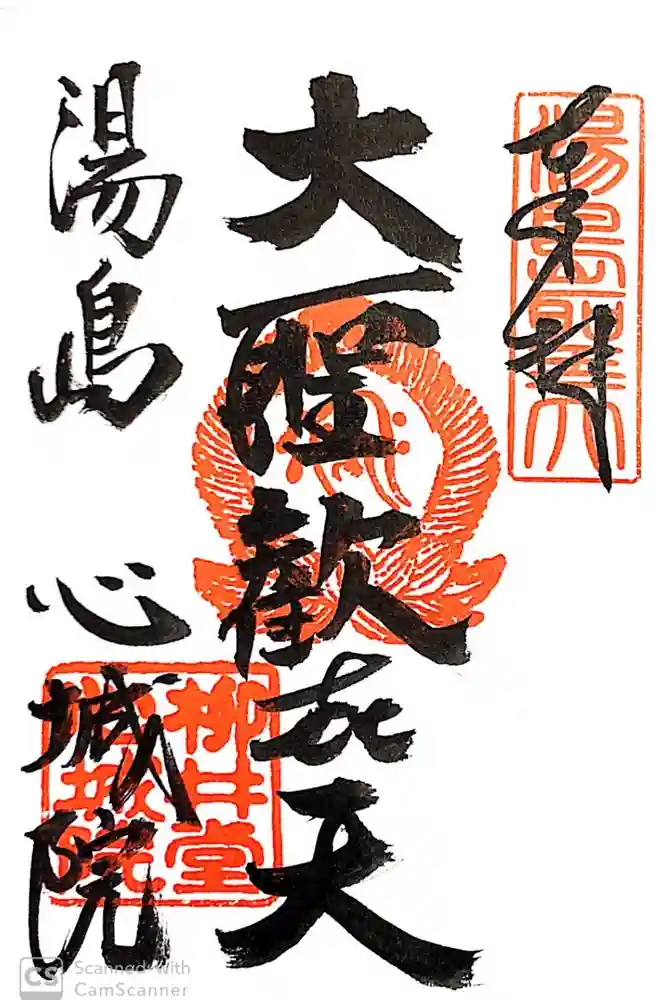 奉拝
大聖歓㐂天
湯島 心城院
湯島聖天
柳井堂
心城院
CS Scanned with
CamScanner